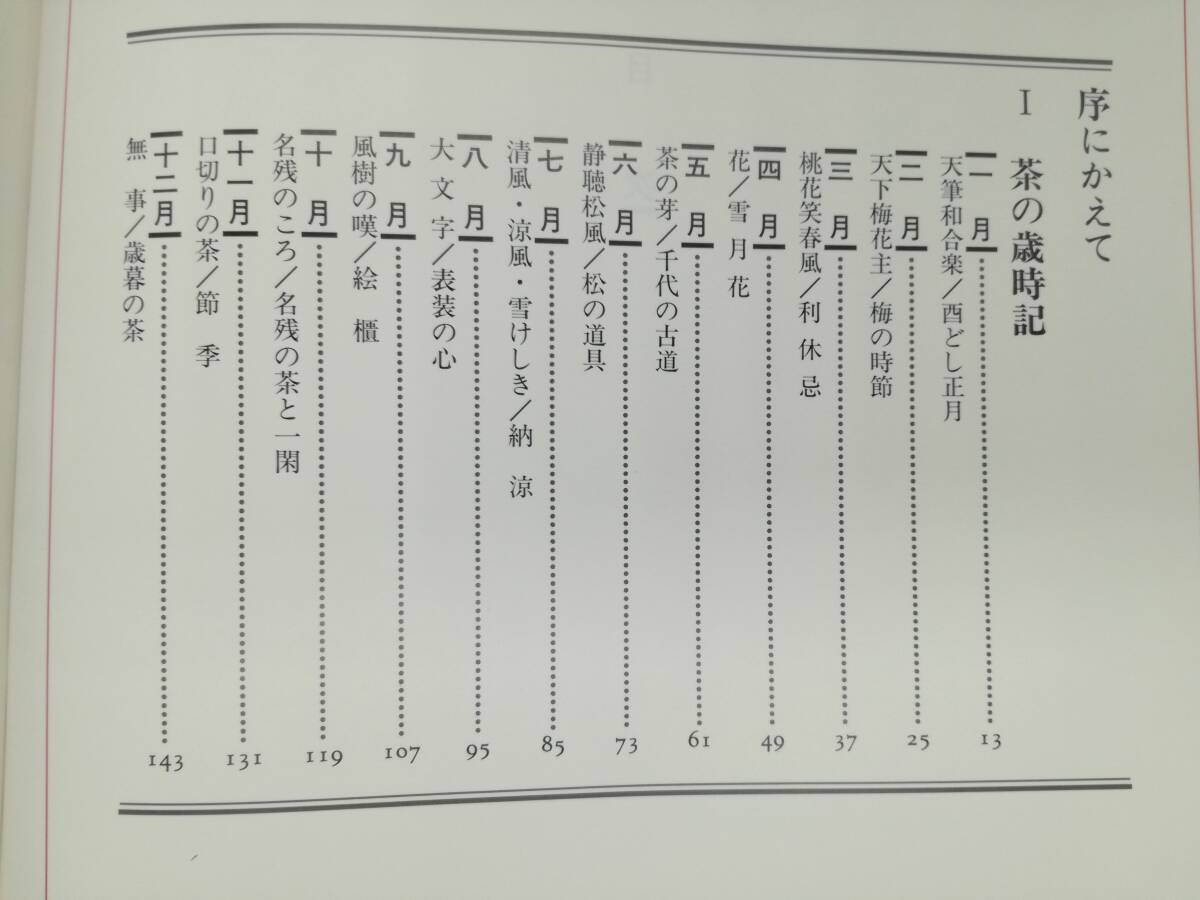 序にかえて
I 茶の歳時記
一月 13
天筆和合楽／酉どし正月
二月 25
天下梅花主／梅の時節
三月 37
桃花笑春風／利休忌
四月 49
花／雪月花
五月 61
茶の芽／千代の古道
六月 73
静聴松風／松の道具
七月 85
清風・涼風・雪けしき／納涼
八月 95
大文字／表装の心
九月 107
風樹の嘆／絵櫃
十月 119
名残のころ／名残の茶と一閑
十一月 131
口切りの茶／節季
十二月 143
無事／歳暮の茶